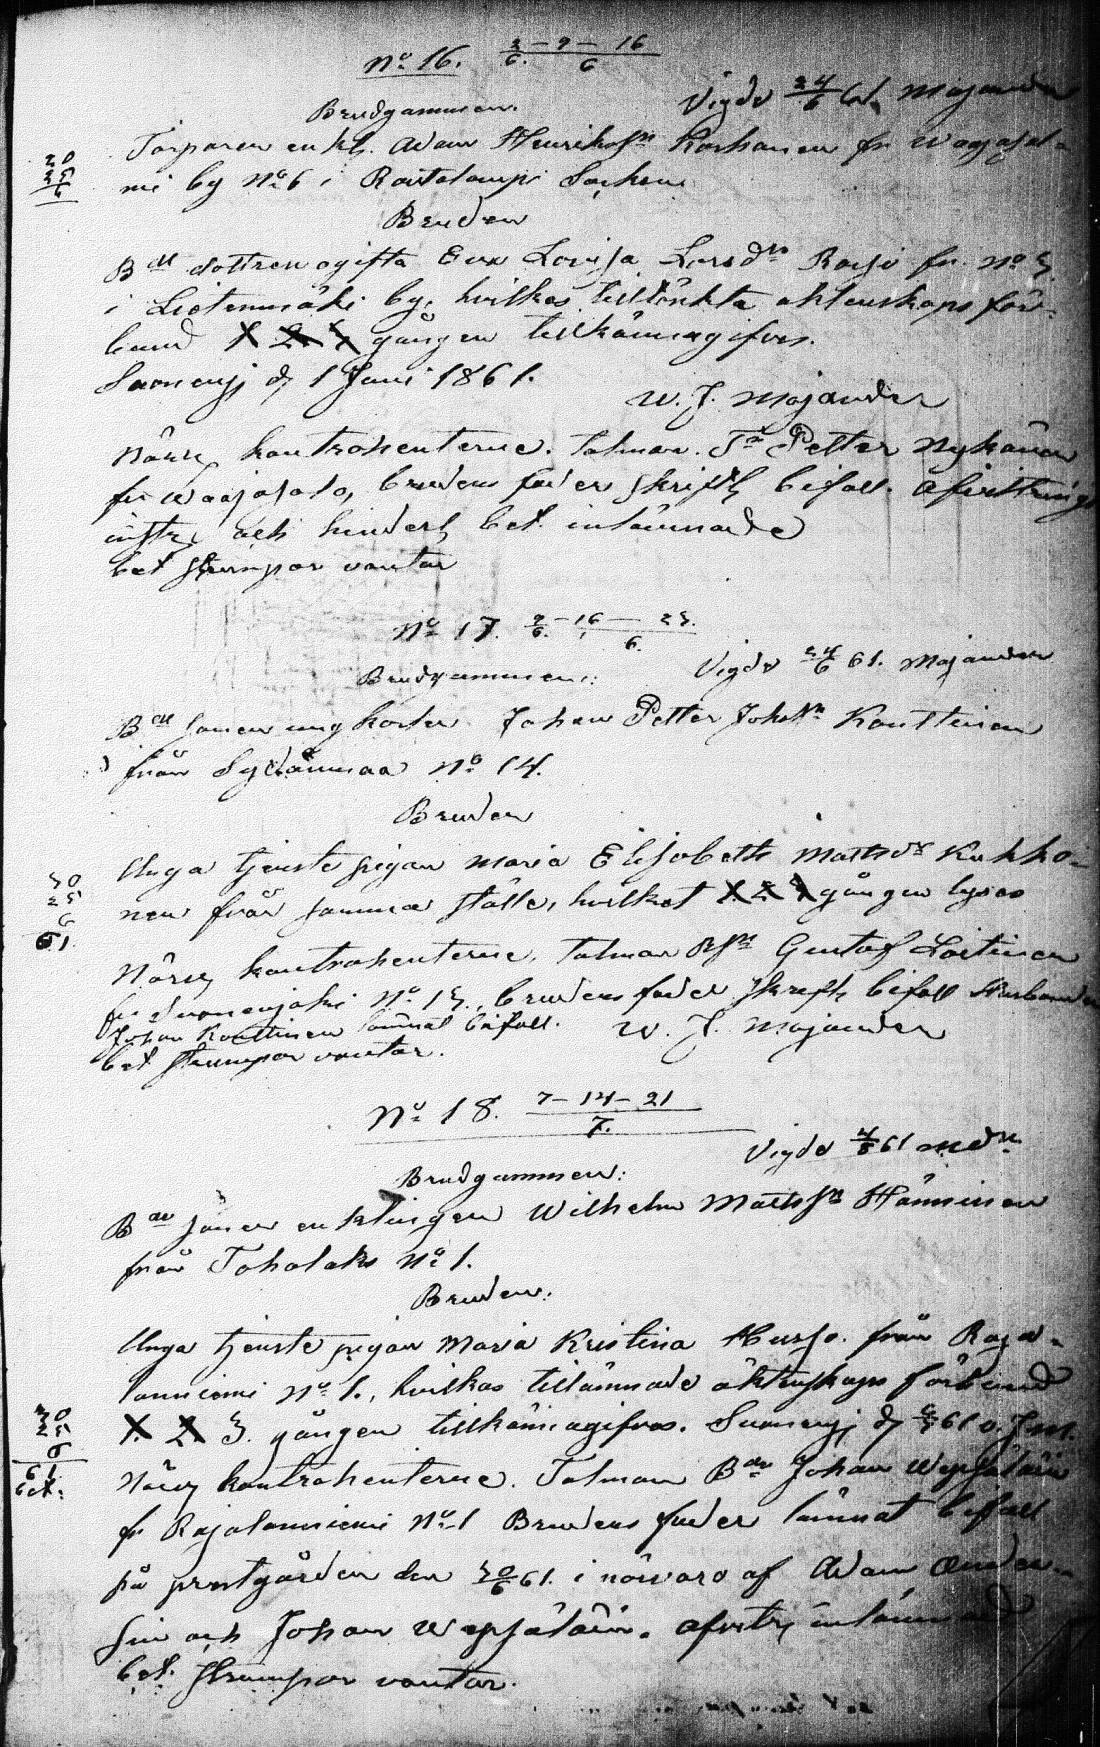 No 16. 2/6. – 9 – 16/6
Vigde 24/6 61. Majander
Brudgummen.
Torparen enkl. Adam Henriksn Korhonen fr. Waajasal-
mi by No 6 i Rautalampi Socken
20
25
6
Bruden
Bde dottren ogifta Eva Lovisa Larsdr fr. No 3
i Lietenmäki by, hvilkas tilltänkta äktenskaps för-
bund 1 2 3 gången tillkännagifves.
Suonenj d. 1 Juni 1861.
W. J. Majander
Närv. kontrahenterne. Talman. Petter Nykänen
fr Waajasalo, brudens fader skriftl bifall. Afvittrings
instr. och hinderl. bet. inlämnade
bet strumpor vantar
No 17. 9/6. – 16 – 23./6.
Vigde 24/6 61. Majander
Brudgummen:
Bde sonen ungkarlen Johan Petter Johsn Kauttinen
från Sydänmaa No 14.
Bruden
Unga tjenstepigan Maria Elisabeth Mattsdr Kukko-
nen från samma ställe, hvilket 1. 2 3 gången lyses
30
25
6
61.
Närv. kontrahenterne, Talman Gustaf
fr Suonenjoki No 13., brudens fader skriftl. bifall Husbonden
Johan Kauttinen lämnat bifall. W. J. Majander
bet strumpor vantar.
No 18. 7 – 14 – 21/7.
Vigde 4/8 61
Brudgummen:
Bde sonen enklingen Wilhelm Mattssn Hänninen
från Toholaks No 1.
Bruden:
Unga tjenstepigan Maria Kristina från Raja-
lanniemi No 1., hvilkas tillämnade äktenskaps förbund
1. 2 3. gången tillkännagifves. Suonenj d. 61
30
25
6
61.
bet:
Närv. kontrahenterne. Talman Bde Johan Wepsäläin
fr Rajalanniemi No 1 Brudens fader lämnat bifall
på prestgården den 30/6 61. i närvaro af Adam
och Johan Wepsäläin. afvittr. inlämnad
bet. strumpor vantar.